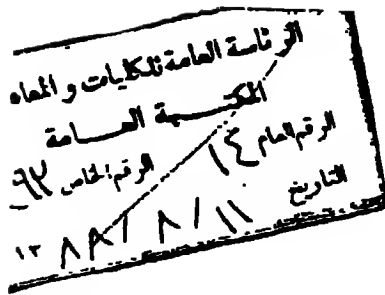 الرئاسة العامة للكليات والمعاه
المكتبة العامة
الرقم العام ١٤ الرقم الخاص ٩٢
التاريخ ١١ / ٨ / ٨٨ ١٣